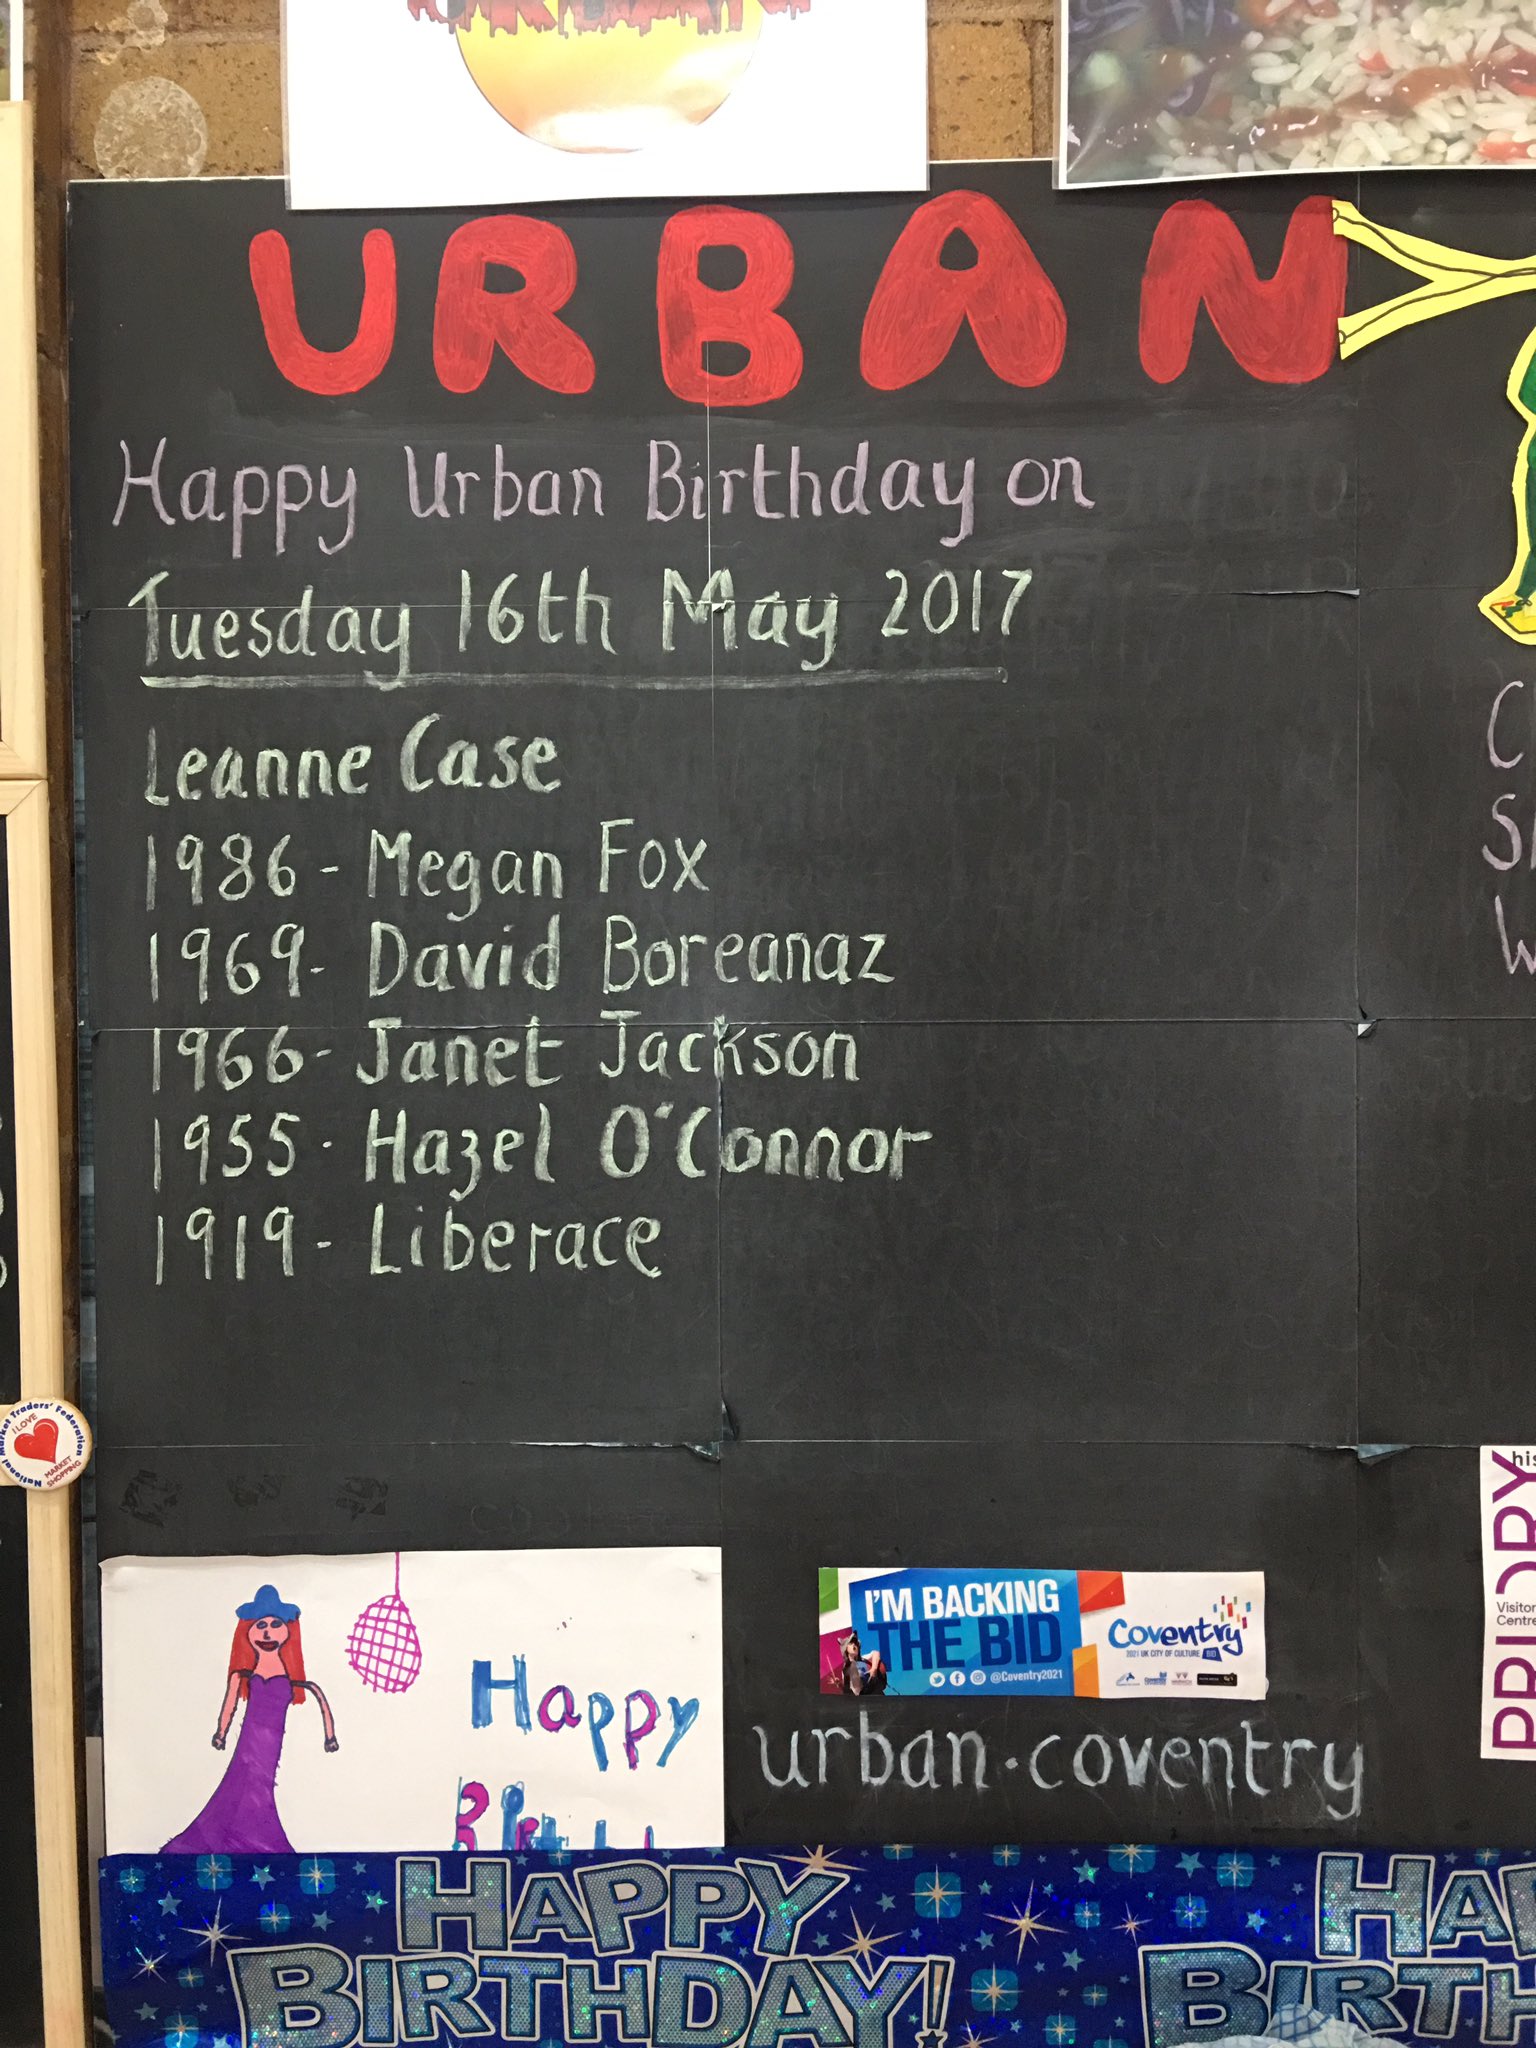 URBAN
Happy Urban Birthday on
Tuesday 16th May 2017
Leanne Case
1986 - Megan Fox
1969 - David Boreanaz
1966 - Janet Jackson
1955 - Hazel O'Connor
1919 - Liberace
National Market Traders' Federation
I LOVE
MARKET
SHOPPING
Happy
I'M BACKING
THE BID
@Coventry2021
Coventry
2021 UK CITY OF CULTURE BID
urban.coventry
his
PRIORY
Visitor
Centre
HAPPY
BIRTHDAY!
HA
BIRTH